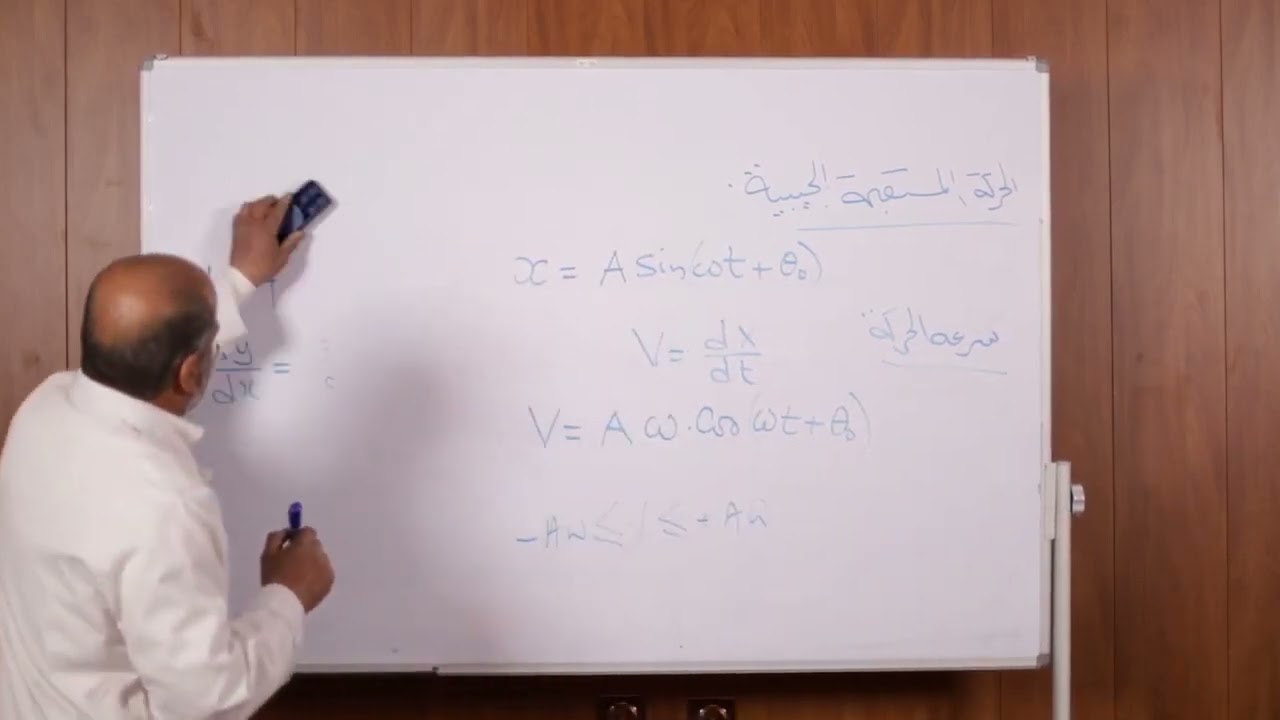 الحركة المستقيمة الجيبية.
x = A sin(ωt + θ₀)
سرعة الحركة:
V = dx/dt
V = Aω.Cos(ωt + θ₀)
-Aω ≤ ≤ + Aω
dy/dx =